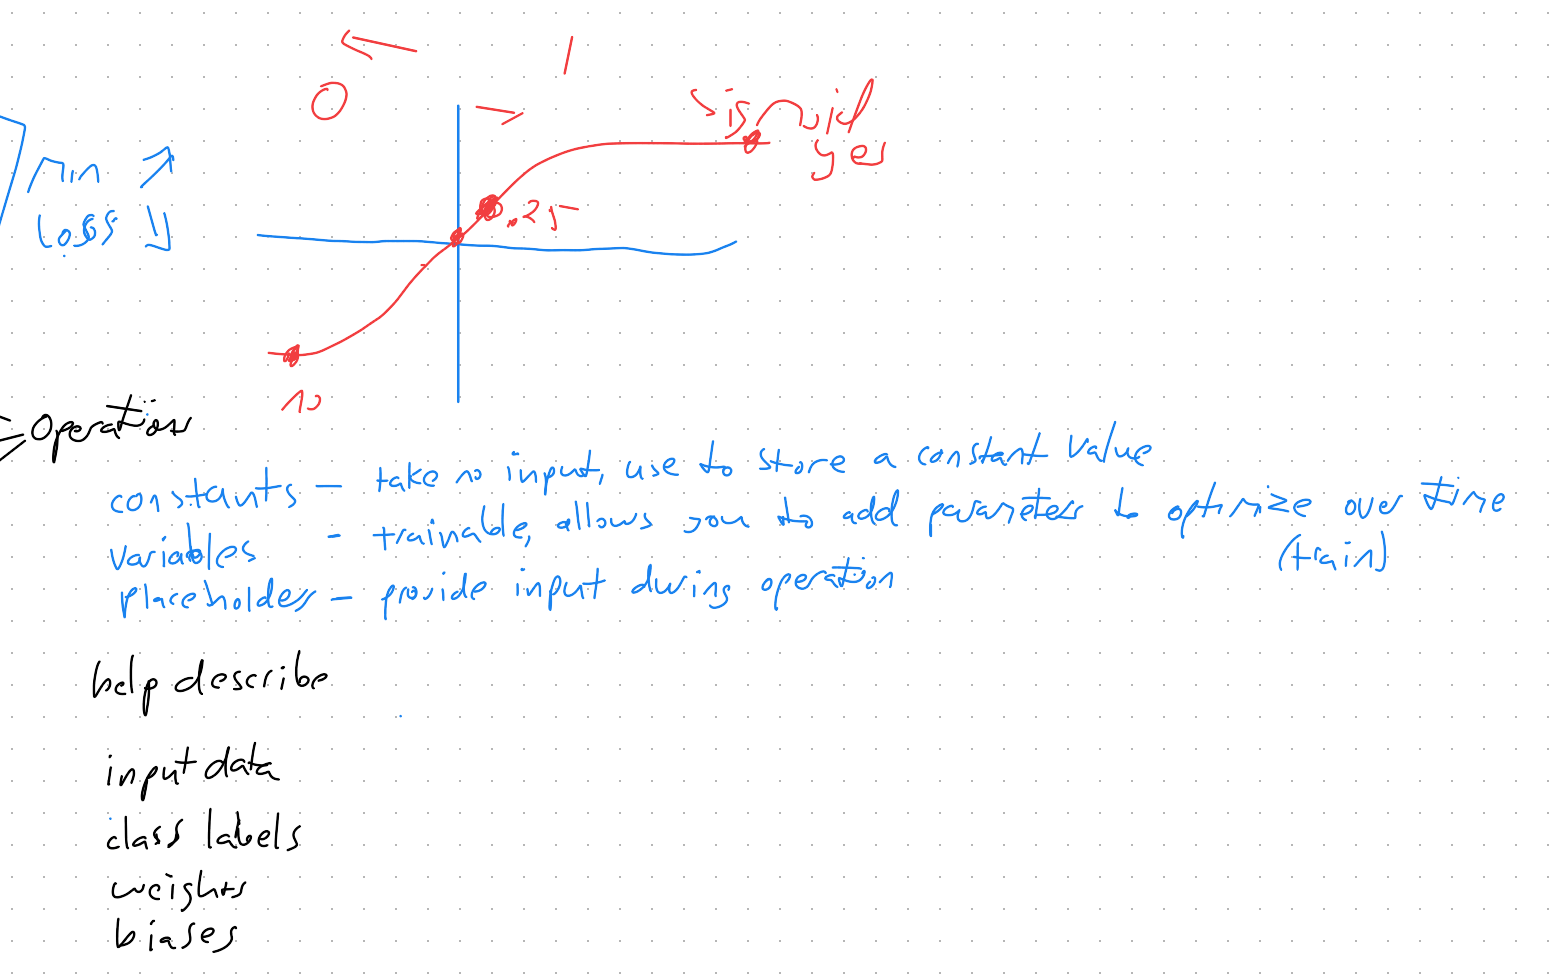 0 1
sigmoid
yes
min
loss
.25
no
operation
constants - take no input, use to store a constant value
variables - trainable, allows you to add parameters to optimize over time
(train)
placeholders - provide input during operation
help describe
input data
class labels
weights
biases